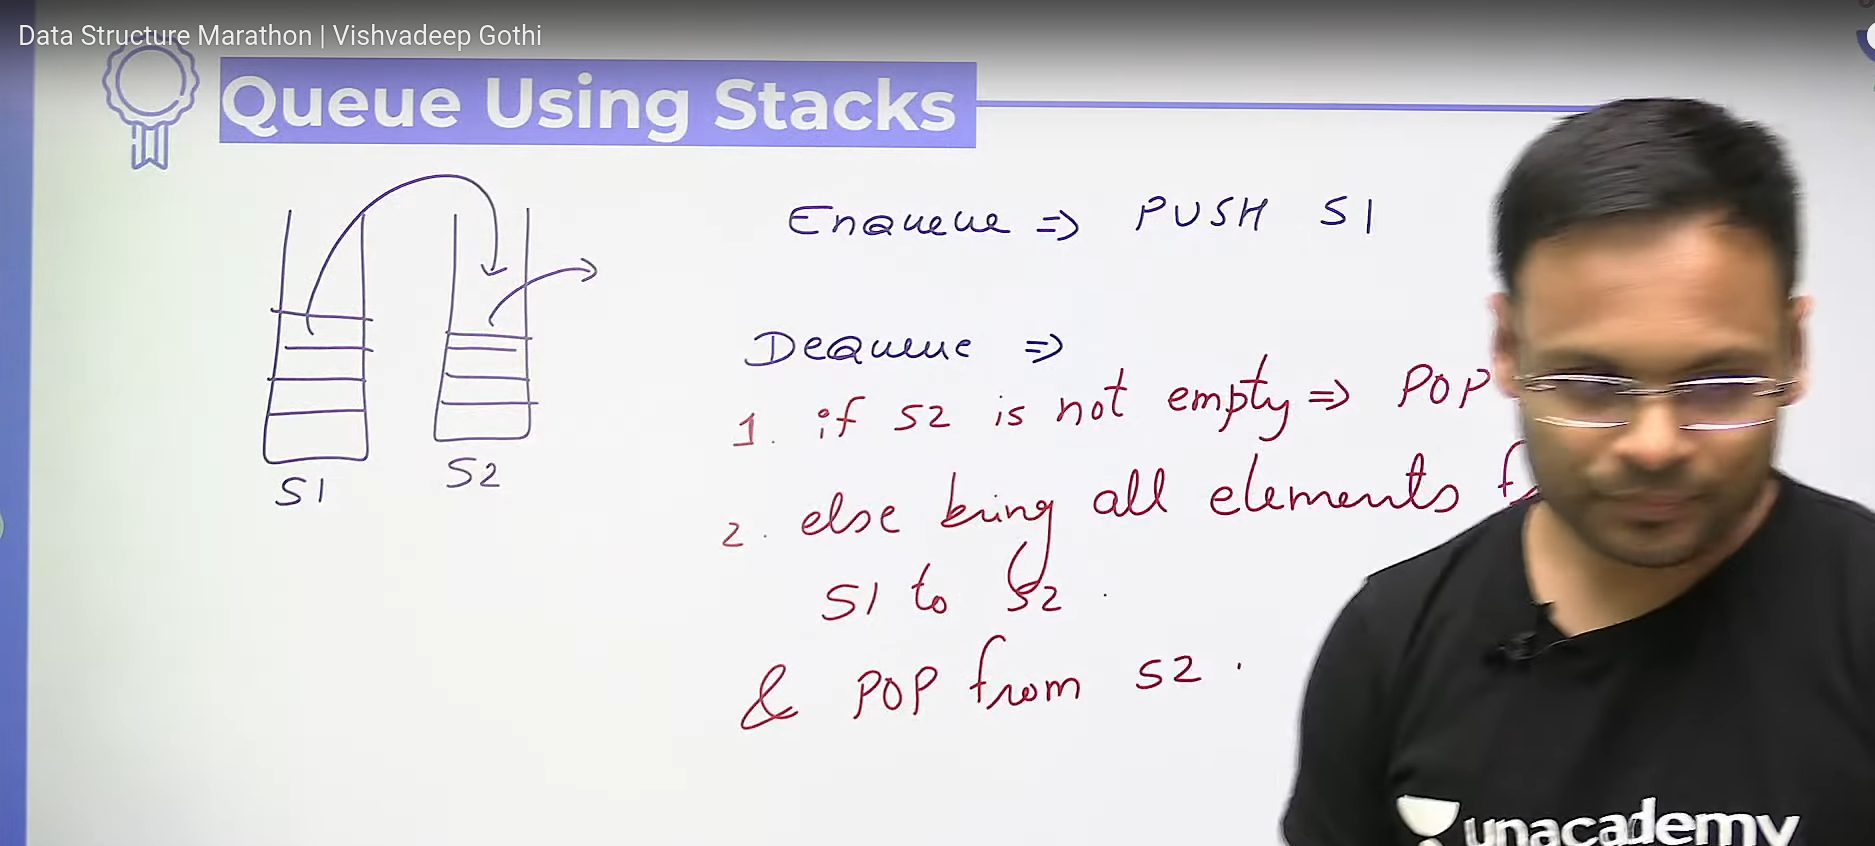 Data Structure Marathon | Vishvadeep Gothi
Queue Using Stacks
Enqueue ⇒ PUSH S1
Dequeue ⇒
1. if S2 is not empty ⇒ POP
2. else bring all elements
S1 to S2.
& POP from S2.
S1
S2
unacademy